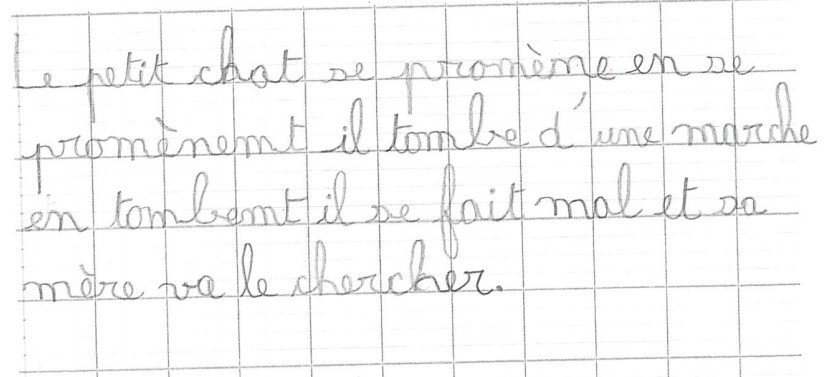 Le petit chat se promème en se
promènemt il tombe d'une marche
en tombemt il se fait mal et sa
mère va le chercher.